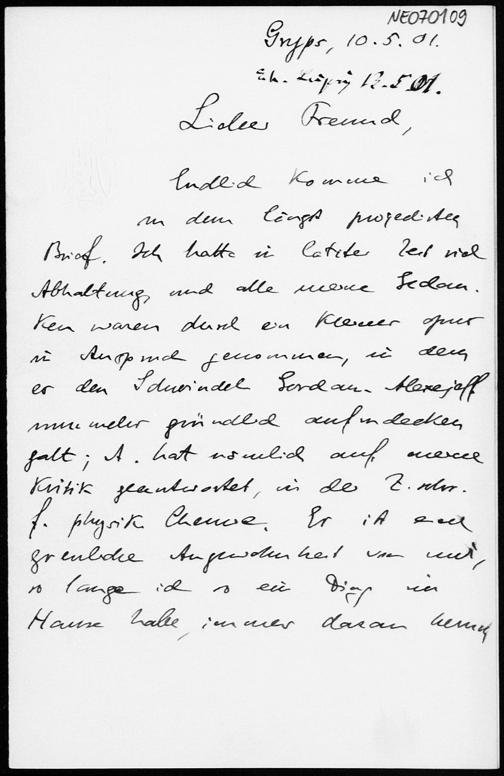 NE070109
Gryps, 10.5.01.
Erh. Leipzig 12.5.01.
Lieber Freund,
Endlich komme ich
zu dem längst projectirten
Brief. Ich hatte in letzter Zeit viel
Abhaltung, und alle meine Gedan-
ken waren durch ein kleines opus
in Anspruch genommen, in dem
es den Schwindel Gordan-Alexejeff
nunmehr gründlich aufzudecken
galt; A. hat nämlich auf meine
Kritik geantwortet, in der Z.schr.
f. physik Chemie. Es ist eine
greuliche Angewohnheit von mir,
so lange ich so ein Ding im
Hause habe, immer daran herum